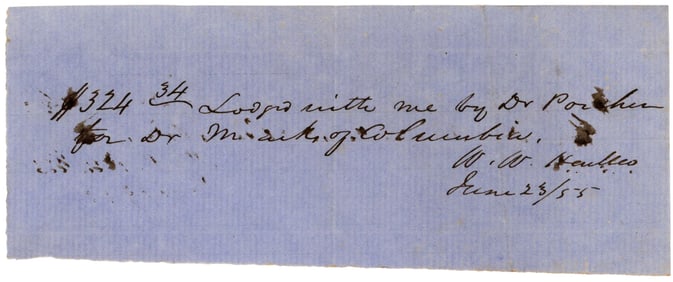 $324 34 Lodged with me by Dr Porcher
for Dr Marks, of Columbia.
W. W.
June 23/55